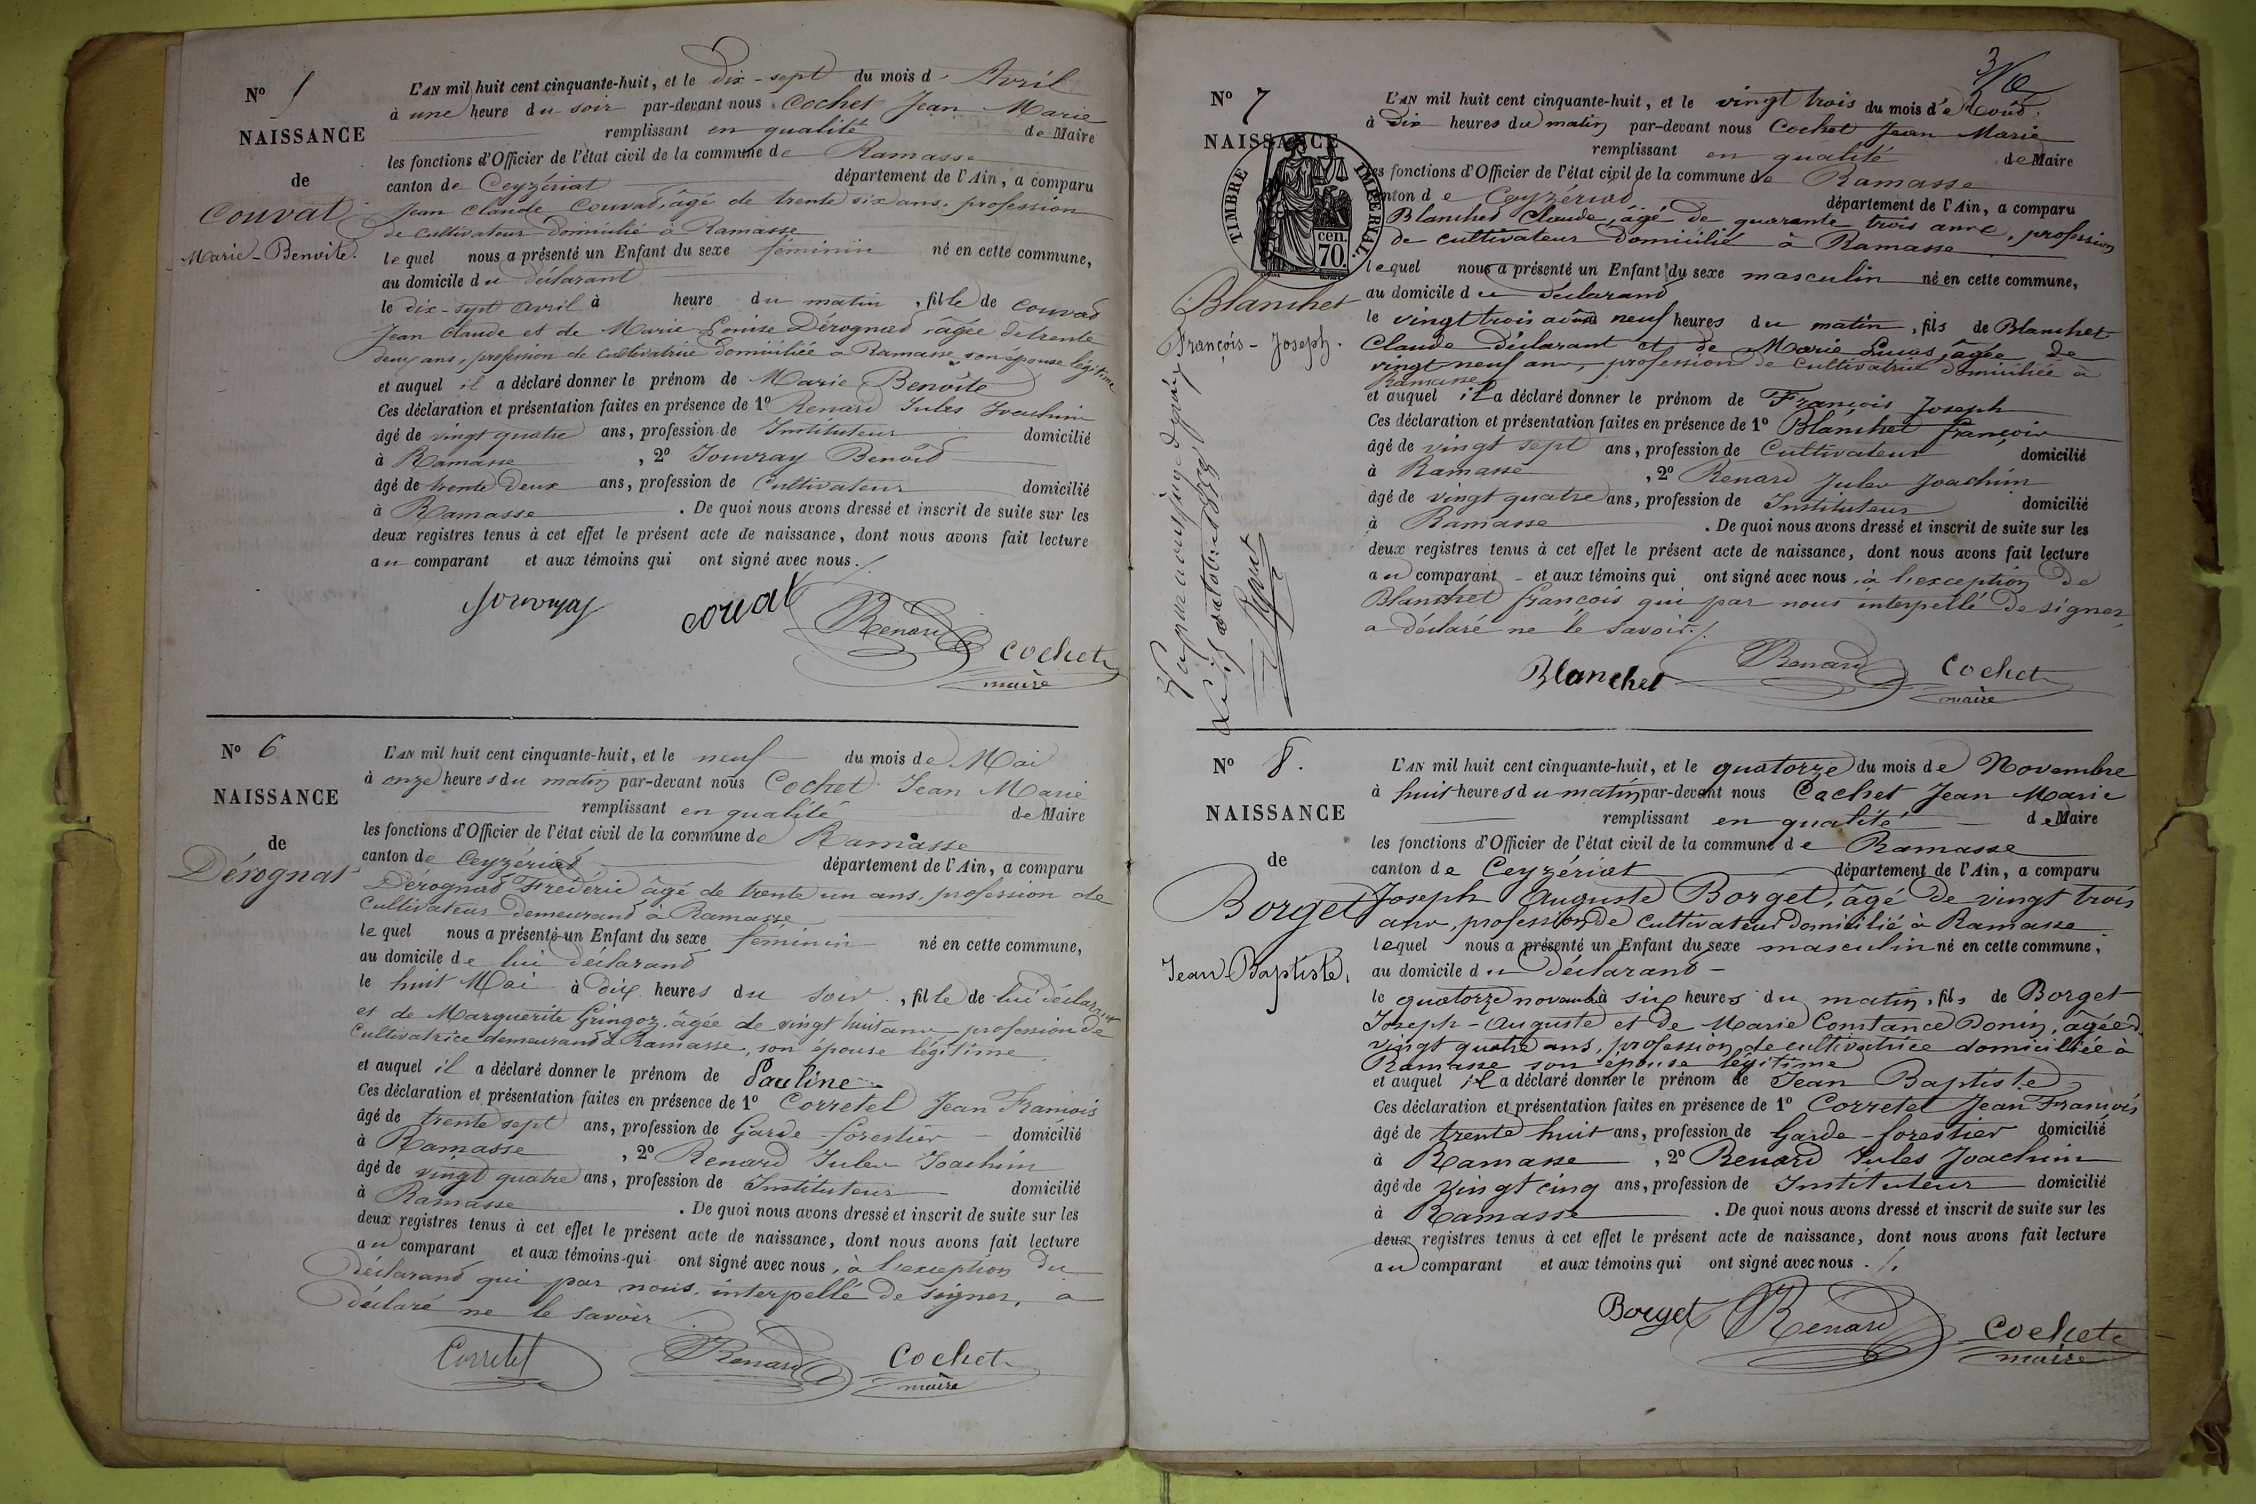 N° 5
NAISSANCE
de
Couvat
Marie-Benoite.
L'AN mil huit cent cinquante-huit, et le dix-sept du mois d'Avril
à une heure du soir par-devant nous Cochet Jean Marie
remplissant en qualité de Maire
les fonctions d'Officier de l'état civil de la commune de Ramasse
canton de Ceyzériat département de l'Ain, a comparu
Jean Claude Couvat, âgé de trente six ans, profession
de cultivateur domicilié à Ramasse
lequel nous a présenté un Enfant du sexe féminin né en cette commune,
au domicile du déclarant
le dix-sept avril à heure du matin, fille de Couvat
Jean Claude et de Marie Louise Dérognat âgée de trente
deux ans, profession de cultivatrice domiciliée à Ramasse son épouse légitime
et auquel il a déclaré donner le prénom de Marie Benoite
Ces déclaration et présentation faites en présence de 1° Renard Jules Joachim
âgé de vingt quatre ans, profession de Instituteur domicilié
à Ramasse, 2° Jouvray Benoit
âgé de trente deux ans, profession de Cultivateur domicilié
à Ramasse. De quoi nous avons dressé et inscrit de suite sur les
deux registres tenus à cet effet le présent acte de naissance, dont nous avons fait lecture
au comparant et aux témoins qui ont signé avec nous.
couvat Renard Cochet
maire
N° 6
NAISSANCE
de
Dérognat
L'AN mil huit cent cinquante-huit, et le neuf du mois de Mai
à onze heures du matin par-devant nous Cochet Jean Marie
remplissant en qualité de Maire
les fonctions d'Officier de l'état civil de la commune de Ramasse
canton de Ceyzériat département de l'Ain, a comparu
Dérognat Frédéric âgé de trente un ans, profession de
cultivateur demeurant à Ramasse
lequel nous a présenté un Enfant du sexe féminin né en cette commune,
au domicile de lui déclarant
le huit Mai à dix heures du soir, fille de lui déclarant
et de Marguerite Gringoz, âgée de vingt huit ans profession de
cultivatrice demeurant à Ramasse, son épouse légitime.
et auquel il a déclaré donner le prénom de Pauline
Ces déclaration et présentation faites en présence de 1° Corretel Jean François
âgé de trente sept ans, profession de Garde-forestier domicilié
à Ramasse, 2° Renard Jules Joachim
âgé de vingt quatre ans, profession de Instituteur domicilié
à Ramasse. De quoi nous avons dressé et inscrit de suite sur les
deux registres tenus à cet effet le présent acte de naissance, dont nous avons fait lecture
au comparant et aux témoins qui ont signé avec nous, à l'exception du
déclarant qui par nous interpellé de signer, a
déclaré ne le savoir
Corretel Renard Cochet
maire
N° 7
NAISSANCE
TIMBRE IMPÉRIAL
cen.
70.
Blanchet
François-Joseph.
L'AN mil huit cent cinquante-huit, et le vingt trois du mois d'Août
à Dix heures du matin par-devant nous Cochet Jean Marie
remplissant en qualité de Maire
les fonctions d'Officier de l'état civil de la commune de Ramasse
canton de Ceyzériat département de l'Ain, a comparu
Blanchet Claude, âgé de quarante trois ans, profession
de cultivateur domicilié à Ramasse
lequel nous a présenté un Enfant du sexe masculin né en cette commune,
au domicile du déclarant
le vingt trois août à neuf heures du matin, fils de Blanchet
Claude déclarant et de Marie Lucas, âgée de
vingt neuf ans, profession de cultivatrice domiciliée à
Ramasse
et auquel il a déclaré donner le prénom de François Joseph
Ces déclaration et présentation faites en présence de 1° Blanchet françois
âgé de vingt sept ans, profession de Cultivateur domicilié
à Ramasse, 2° Renard Jules Joachim
âgé de vingt quatre ans, profession de Instituteur domicilié
à Ramasse. De quoi nous avons dressé et inscrit de suite sur les
deux registres tenus à cet effet le présent acte de naissance, dont nous avons fait lecture
au comparant et aux témoins qui ont signé avec nous, à l'exception de
Blanchet françois qui par nous interpellé de signer
a déclaré ne le savoir.
Blanchet Renard Cochet
maire
N° 8.
NAISSANCE
de
Borget
Jean-Baptiste.
L'AN mil huit cent cinquante-huit, et le quatorze du mois de Novembre
à huit heures du matin par-devant nous Cochet Jean Marie
remplissant en qualité de Maire
les fonctions d'Officier de l'état civil de la commune de Ramasse
canton de Ceyzériat département de l'Ain, a comparu
Joseph Auguste Borget, âgé de vingt trois
ans, profession de cultivateur domicilié à Ramasse
lequel nous a présenté un Enfant du sexe masculin né en cette commune,
au domicile du déclarant
le quatorze novembre à six heures du matin, fils de Borget
Joseph-Auguste et de Marie Constance Donin, âgée de
vingt quatre ans, profession de cultivatrice domiciliée à
Ramasse son épouse légitime
et auquel il a déclaré donner le prénom de Jean Baptiste
Ces déclaration et présentation faites en présence de 1° Corretel Jean François
âgé de trente huit ans, profession de Garde-forestier domicilié
à Ramasse, 2° Renard Jules Joachim
âgé de vingt cinq ans, profession de Instituteur domicilié
à Ramasse. De quoi nous avons dressé et inscrit de suite sur les
deux registres tenus à cet effet le présent acte de naissance, dont nous avons fait lecture
au comparant et aux témoins qui ont signé avec nous.
Borget Renard Cochet
maire